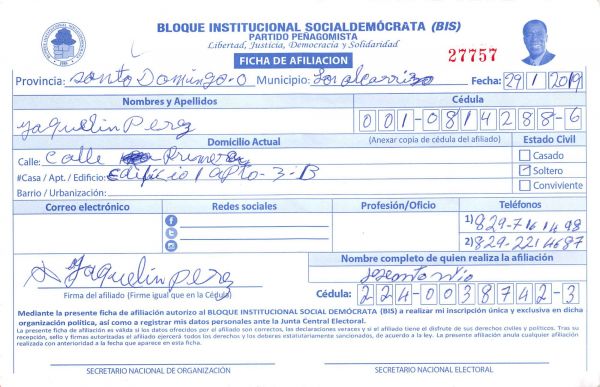 BLOQUE INSTITUCIONAL SOCIALDEMÓCRATA (BIS)
PARTIDO PEÑAGOMISTA
Libertad, Justicia, Democracia y Solidaridad
FICHA DE AFILIACION
27757
Provincia: Santo Domingo.O Municipio: Los alcarrizo Fecha: 29/1/2019
Nombres y Apellidos
Cédula
Yaquelin Perez
001-0814288-6
Domicilio Actual
(Anexar copia de cédula del afiliado)
Estado Civil
Calle: Calle Primera
Casado
#Casa / Apt. / Edificio: Edificio 1 apto-3-B
Soltero
Barrio / Urbanización:
Conviviente
Correo electrónico
Redes sociales
Profesión/Oficio
Teléfonos
1) 829-716 1498
2) 829-221 4687
Nombre completo de quien realiza la afiliación
Yaquelin Perez
Firma del afiliado (Firme igual que en la Cédula)
Cédula: 224-0038742-3
Mediante la presente ficha de afiliación autorizo al BLOQUE INSTITUCIONAL SOCIAL DEMÓCRATA (BIS) a realizar mi inscripción única y exclusiva en dicha
organización política, así como a registrar mis datos personales ante la Junta Central Electoral.
La presente ficha de afiliación es válida y los datos ofrecidos por el afiliado son correctos, las declaraciones veraces y si el afiliado tiene el disfrute de sus derechos civiles y políticos. Tras su
recepción, sello y firmas autorizadas el afiliado ejercerá todos los derechos y los deberes estatutariamente sancionados, de acuerdo a la ley. La presente afiliación anula cualquier afiliación
realizada con anterioridad a la fecha que aparece en esta ficha.
SECRETARIO NACIONAL DE ORGANIZACIÓN
SECRETARIO NACIONAL ELECTORAL